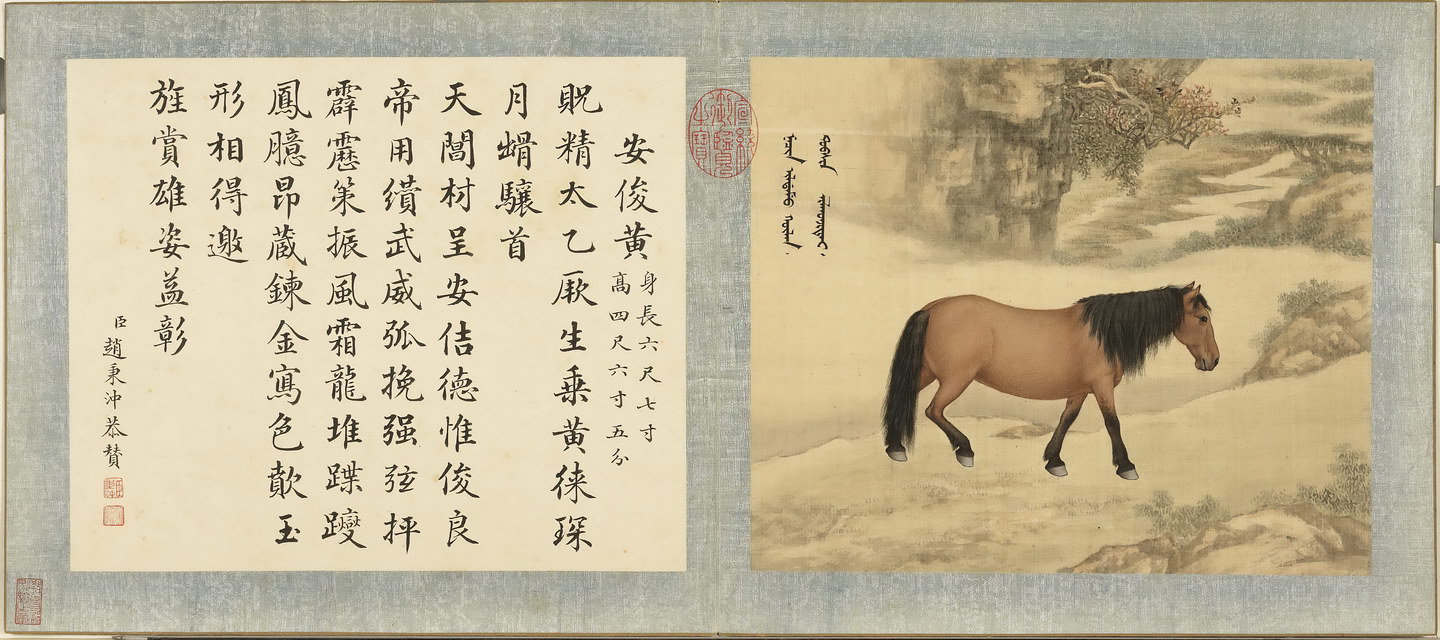 安俊黃
身長六尺七寸
高四尺六寸五分
貺精太乙厥生乗黃徠琛
月驤首
天閶材呈安佶德惟俊良
帝用纘武威弧挽强弦抨
霹靂策振風霜龍堆蹀躞
鳳臆昂蔵鍊金寫色歕玉
形相得邀
旌賞雄姿益彰
臣趙秉沖恭贊
宣統御覽之寶